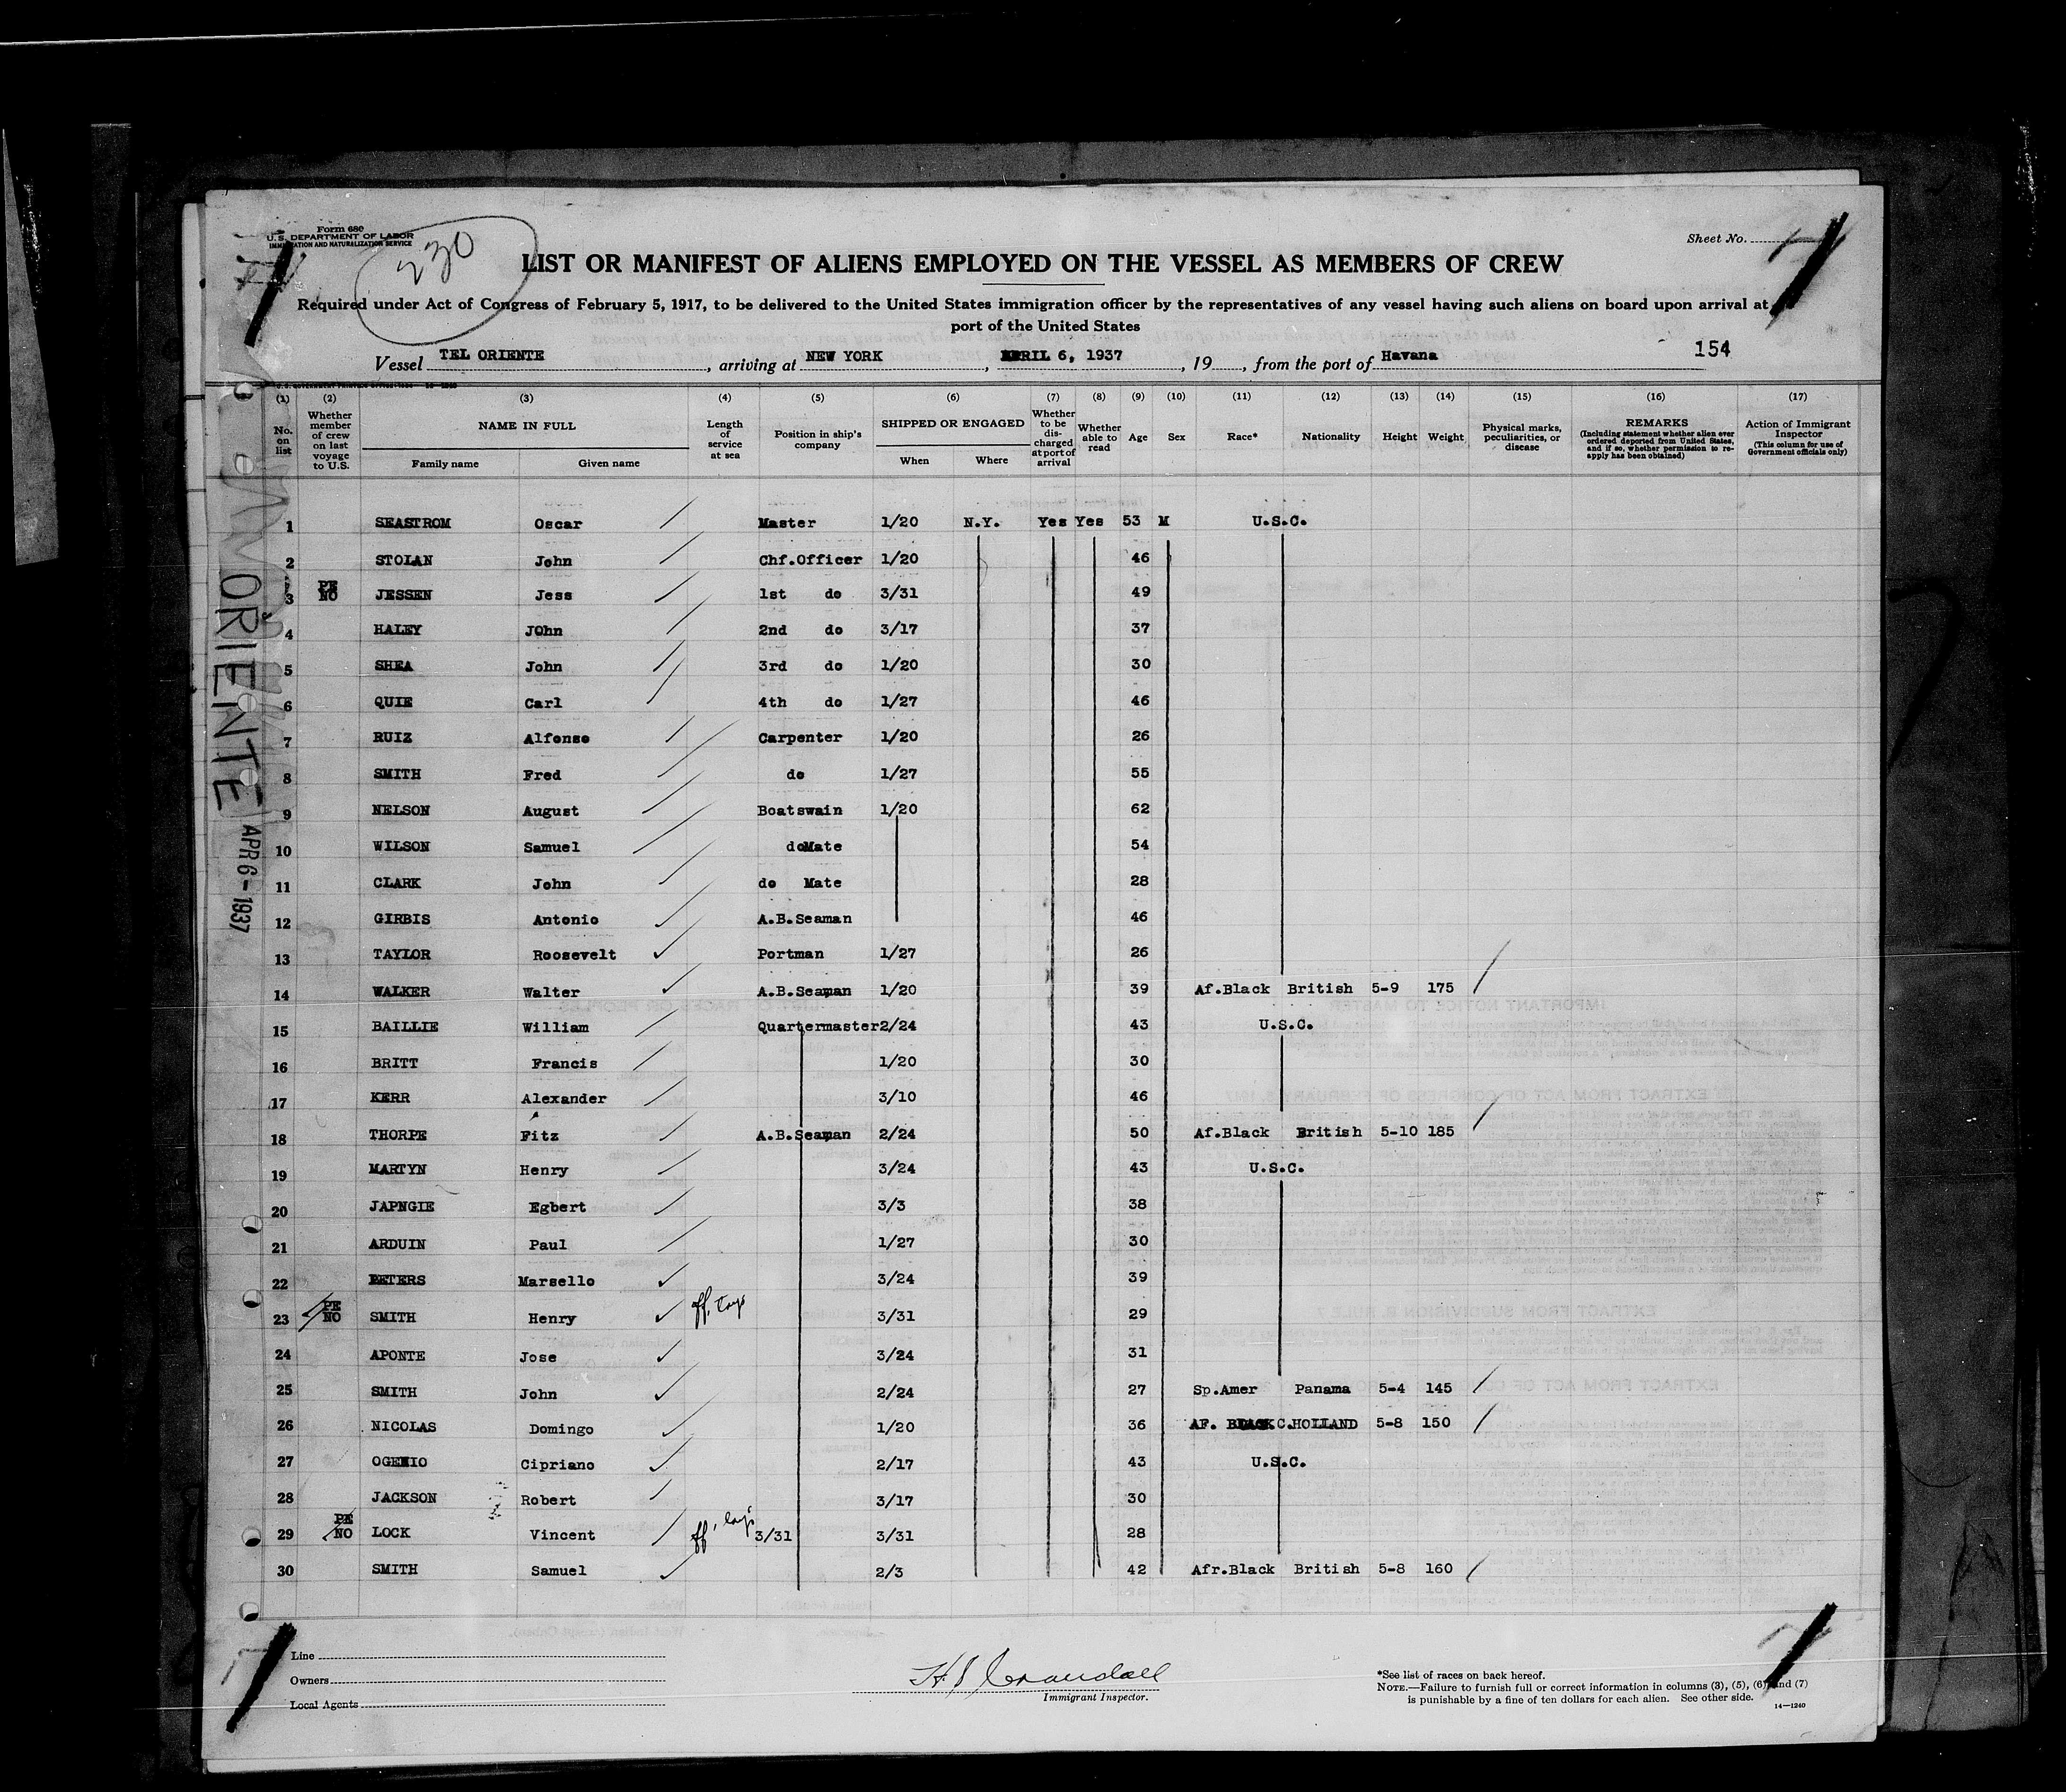 Form 680
U.S. DEPARTMENT OF LABOR
IMMIGRATION AND NATURALIZATION SERVICE
230
Sheet No.
LIST OR MANIFEST OF ALIENS EMPLOYED ON THE VESSEL AS MEMBERS OF CREW
Required under Act of Congress of February 5, 1917, to be delivered to the United States immigration officer by the representatives of any vessel having such aliens on board upon arrival at
port of the United States
Vessel TEL ORIENTE, arriving at NEW YORK, APRIL 6, 1937, 19, from the port of Havana 154
(1) (2) (3) (4) (5) (6) (7) (8) (9) (10) (11) (12) (13) (14) (15) (16) (17)
No. on list
Whether member of crew on last voyage to U.S.
NAME IN FULL
Family name Given name
Length of service at sea
Position in ship's company
SHIPPED OR ENGAGED
When Where
Whether to be discharged at port of arrival
Whether able to read
Age
Sex
Race*
Nationality
Height
Weight
Physical marks, peculiarities, or disease
REMARKS
(Including statement whether alien ever ordered deported from United States, and if so, whether permission to re-apply has been obtained)
Action of Immigrant Inspector
(This column for use of Government officials only)
1 SEASTROM Oscar Master 1/20 N.Y. Yes Yes 53 M U.S.C.
2 STOLAN John Chf.Officer 1/20 46
3 PE NO JESSEN Jess 1st do 3/31 49
4 HALEY JOhn 2nd do 3/17 37
5 SHEA John 3rd do 1/20 30
6 QUIE Carl 4th do 1/27 46
7 RUIZ Alfonso Carpenter 1/20 26
8 SMITH Fred do 1/27 55
9 NELSON August Boatswain 1/20 62
10 WILSON Samuel doMate 54
11 CLARK John do Mate 28
12 GIRBIS Antonio A.B.Seaman 46
13 TAYLOR Roosevelt Portman 1/27 26
14 WALKER Walter A.B.Seaman 1/20 39 Af.Black British 5-9 175
15 BAILLIE William Quartermaster 2/24 43 U.S.C.
16 BRITT Francis 1/20 30
17 KERR Alexander 3/10 46
18 THORPE Fitz A.B.Seaman 2/24 50 Af.Black British 5-10 185
19 MARTYN Henry 3/24 43 U.S.C.
20 JAPNGIE Egbert 3/3 38
21 ARDUIN Paul 1/27 30
22 PETERS Marsello 3/24 39
23 PE NO SMITH Henry 3/31 29
24 APONTE Jose 3/24 31
25 SMITH John 2/24 27 Sp.Amer Panama 5-4 145
26 NICOLAS Domingo 1/20 36 AF. BLACK C.HOLLAND 5-8 150
27 OGENIO Cipriano 2/17 43 U.S.C.
28 JACKSON Robert 3/17 30
29 PE NO LOCK Vincent 3/31 3/31 28
30 SMITH Samuel 2/3 42 Afr.Black British 5-8 160
ORIENTE
APR 6 - 1937
Line
Owners
Local Agents
H S Crandall
Immigrant Inspector.
*See list of races on back hereof.
NOTE.—Failure to furnish full or correct information in columns (3), (5), (6) and (7)
is punishable by a fine of ten dollars for each alien. See other side.
14—1240